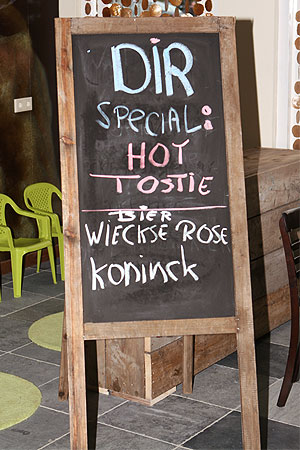 DiR
SPECiAL:
HOT
TOSTiE
BiER
WiECKSE ROSE
Koninck